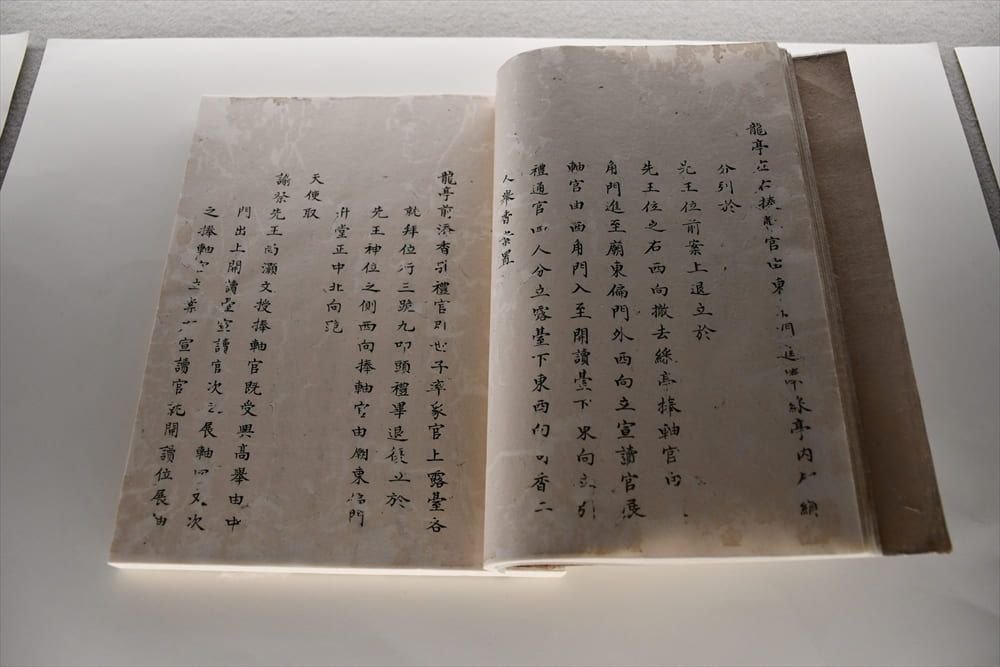 龍亭左右捧官由東角門進將綵亭內
分列於
先王位前案上退立於
先王位之右西向撤去綵亭捧軸官由
角門進至廟東偏門外西向立宣讀官展
軸官由西角門入至開讀臺下東向立引
禮通官四人分立露臺下東西向司香二
人舉香案置
龍亭前添香引禮官引世子率衆官上露臺各
就拜位行三跪九叩頭禮畢退復立於
先王神位之側西向捧軸官由廟東偏門
升堂正中北向跪
天使取
諭祭先王尚灝文授捧軸官既受興高舉由中
門出上開讀臺宣讀官次之展軸官又次
之捧軸官立案宣讀官就開讀位展